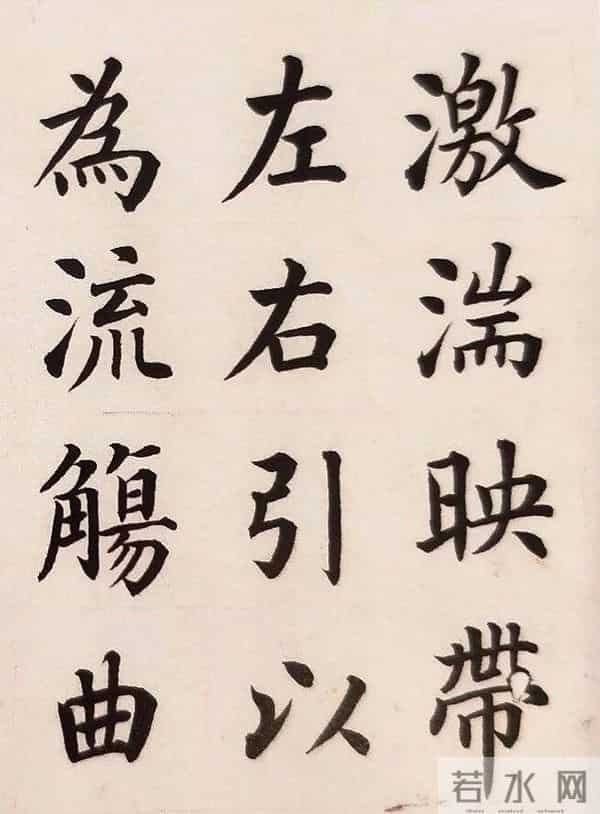 激湍映帶
左右引以
為流觴曲
若水网